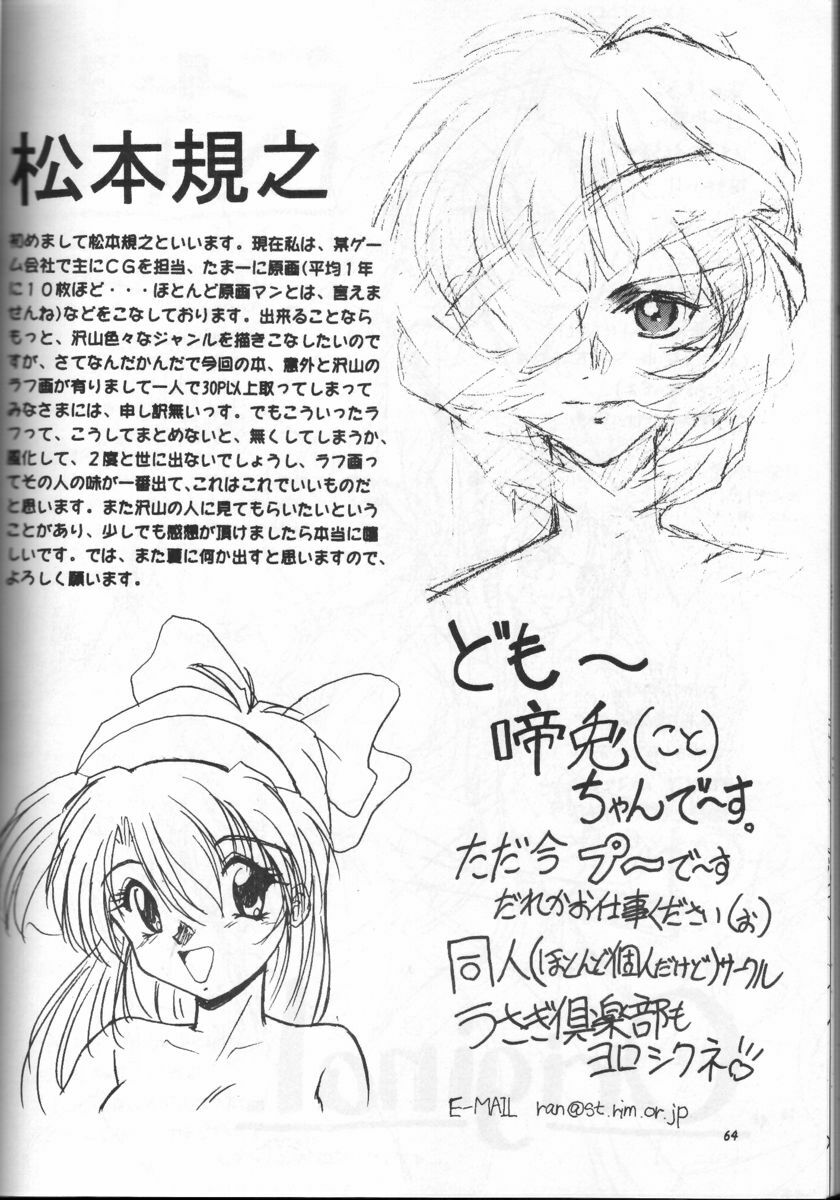 松本規之
初めまして松本規之といいます。現在私は、某ゲー
ム会社で主にCGを担当、たまーに原画(平均1年
に10枚ほど・・・ほとんど原画マンとは、言えま
せんね)などをこなしております。出来ることなら
もっと、沢山色々なジャンルを描きこなしたいので
すが、さてなんだかんだで今回の本、意外と沢山の
ラフ画が有りまして一人で30P以上取ってしまって
みなさまには、申し訳無いっす。でもこういったラ
フって、こうしてまとめないと、無くしてしまうか、
風化して、2度と世に出ないでしょうし、ラフ画っ
てその人の味が一番出て、これはこれでいいものだ
と思います。また沢山の人に見てもらいたいという
ことがあり、少しでも感想が頂けましたら本当に嬉
しいです。では、また夏に何か出すと思いますので、
よろしく願います。
ども〜
啼兎(こと)
ちゃんで〜す。
ただ今プーで〜す
だれかお仕事ください(お)
同人(ほとんど個人だけど)サークル
うさぎ倶楽部も
ヨロシクネ♡
E-MAIL ran@st.rim.or.jp
64